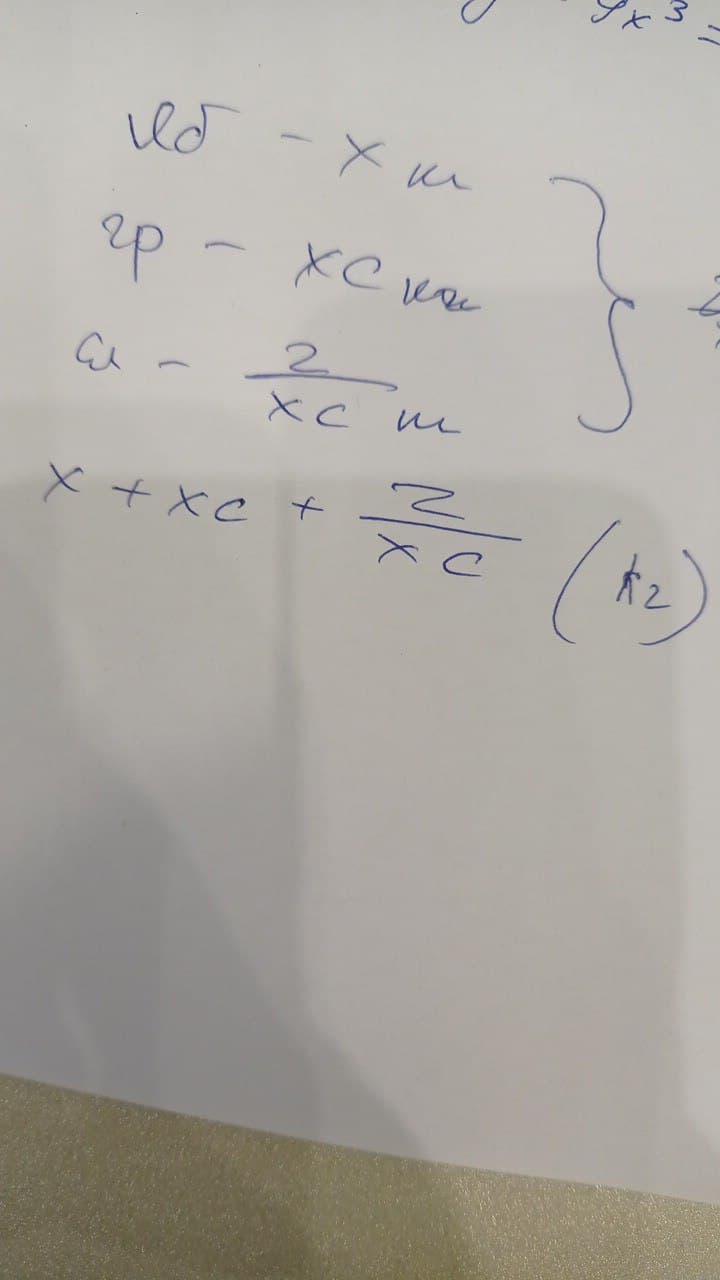 9x³ =
яб - x кг
гр - xc кг
сл - 2/xc кг
x + xc + 2/xc (кг)